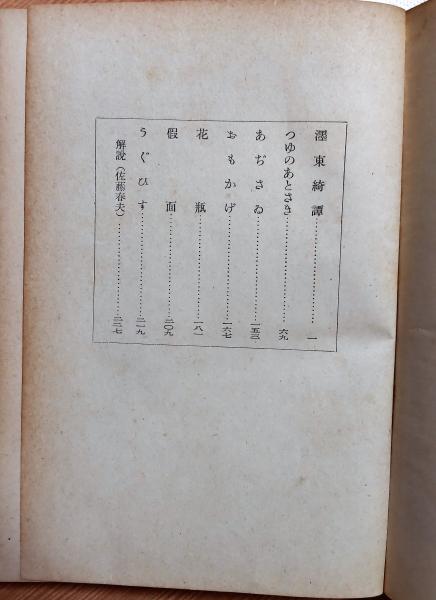 濹東綺譚………………一
つゆのあとさき………………六九
あぢさゐ………………一五三
おもかげ………………一六七
花瓶………………一八一
假面………………二〇九
うぐひす………………二一九
解說（佐藤春夫）………………二二七